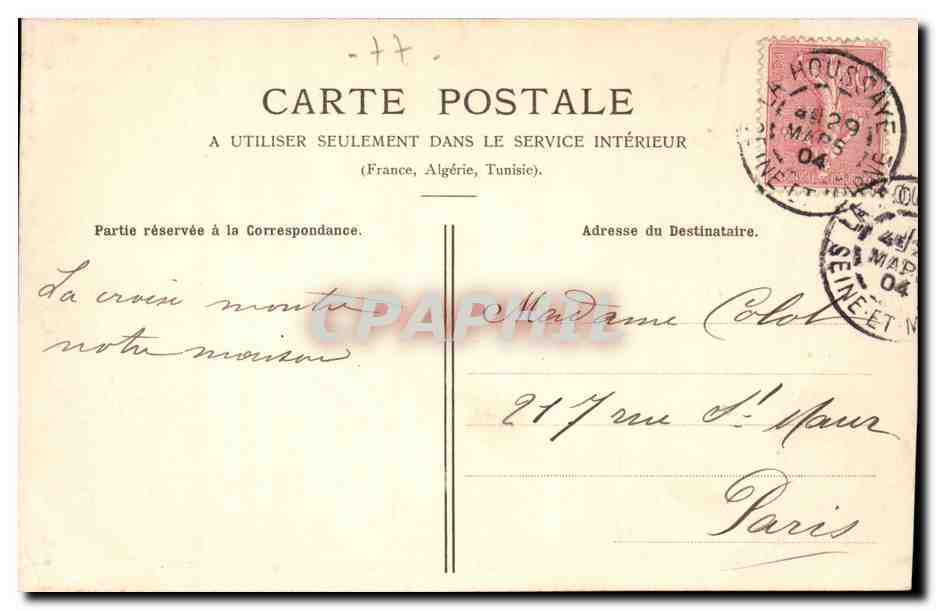 - 77 -
CARTE POSTALE
A UTILISER SEULEMENT DANS LE SERVICE INTÉRIEUR
(France, Algérie, Tunisie).
Partie réservée à la Correspondance.
La croise montre
notre maison
Adresse du Destinataire.
Madame Colot
217 rue St Maur
Paris
LA HOUSSAYE
29
MARS
04
SEINE-ET-MARNE
MAR
04
SEINE-ET-M
CPAPHIL